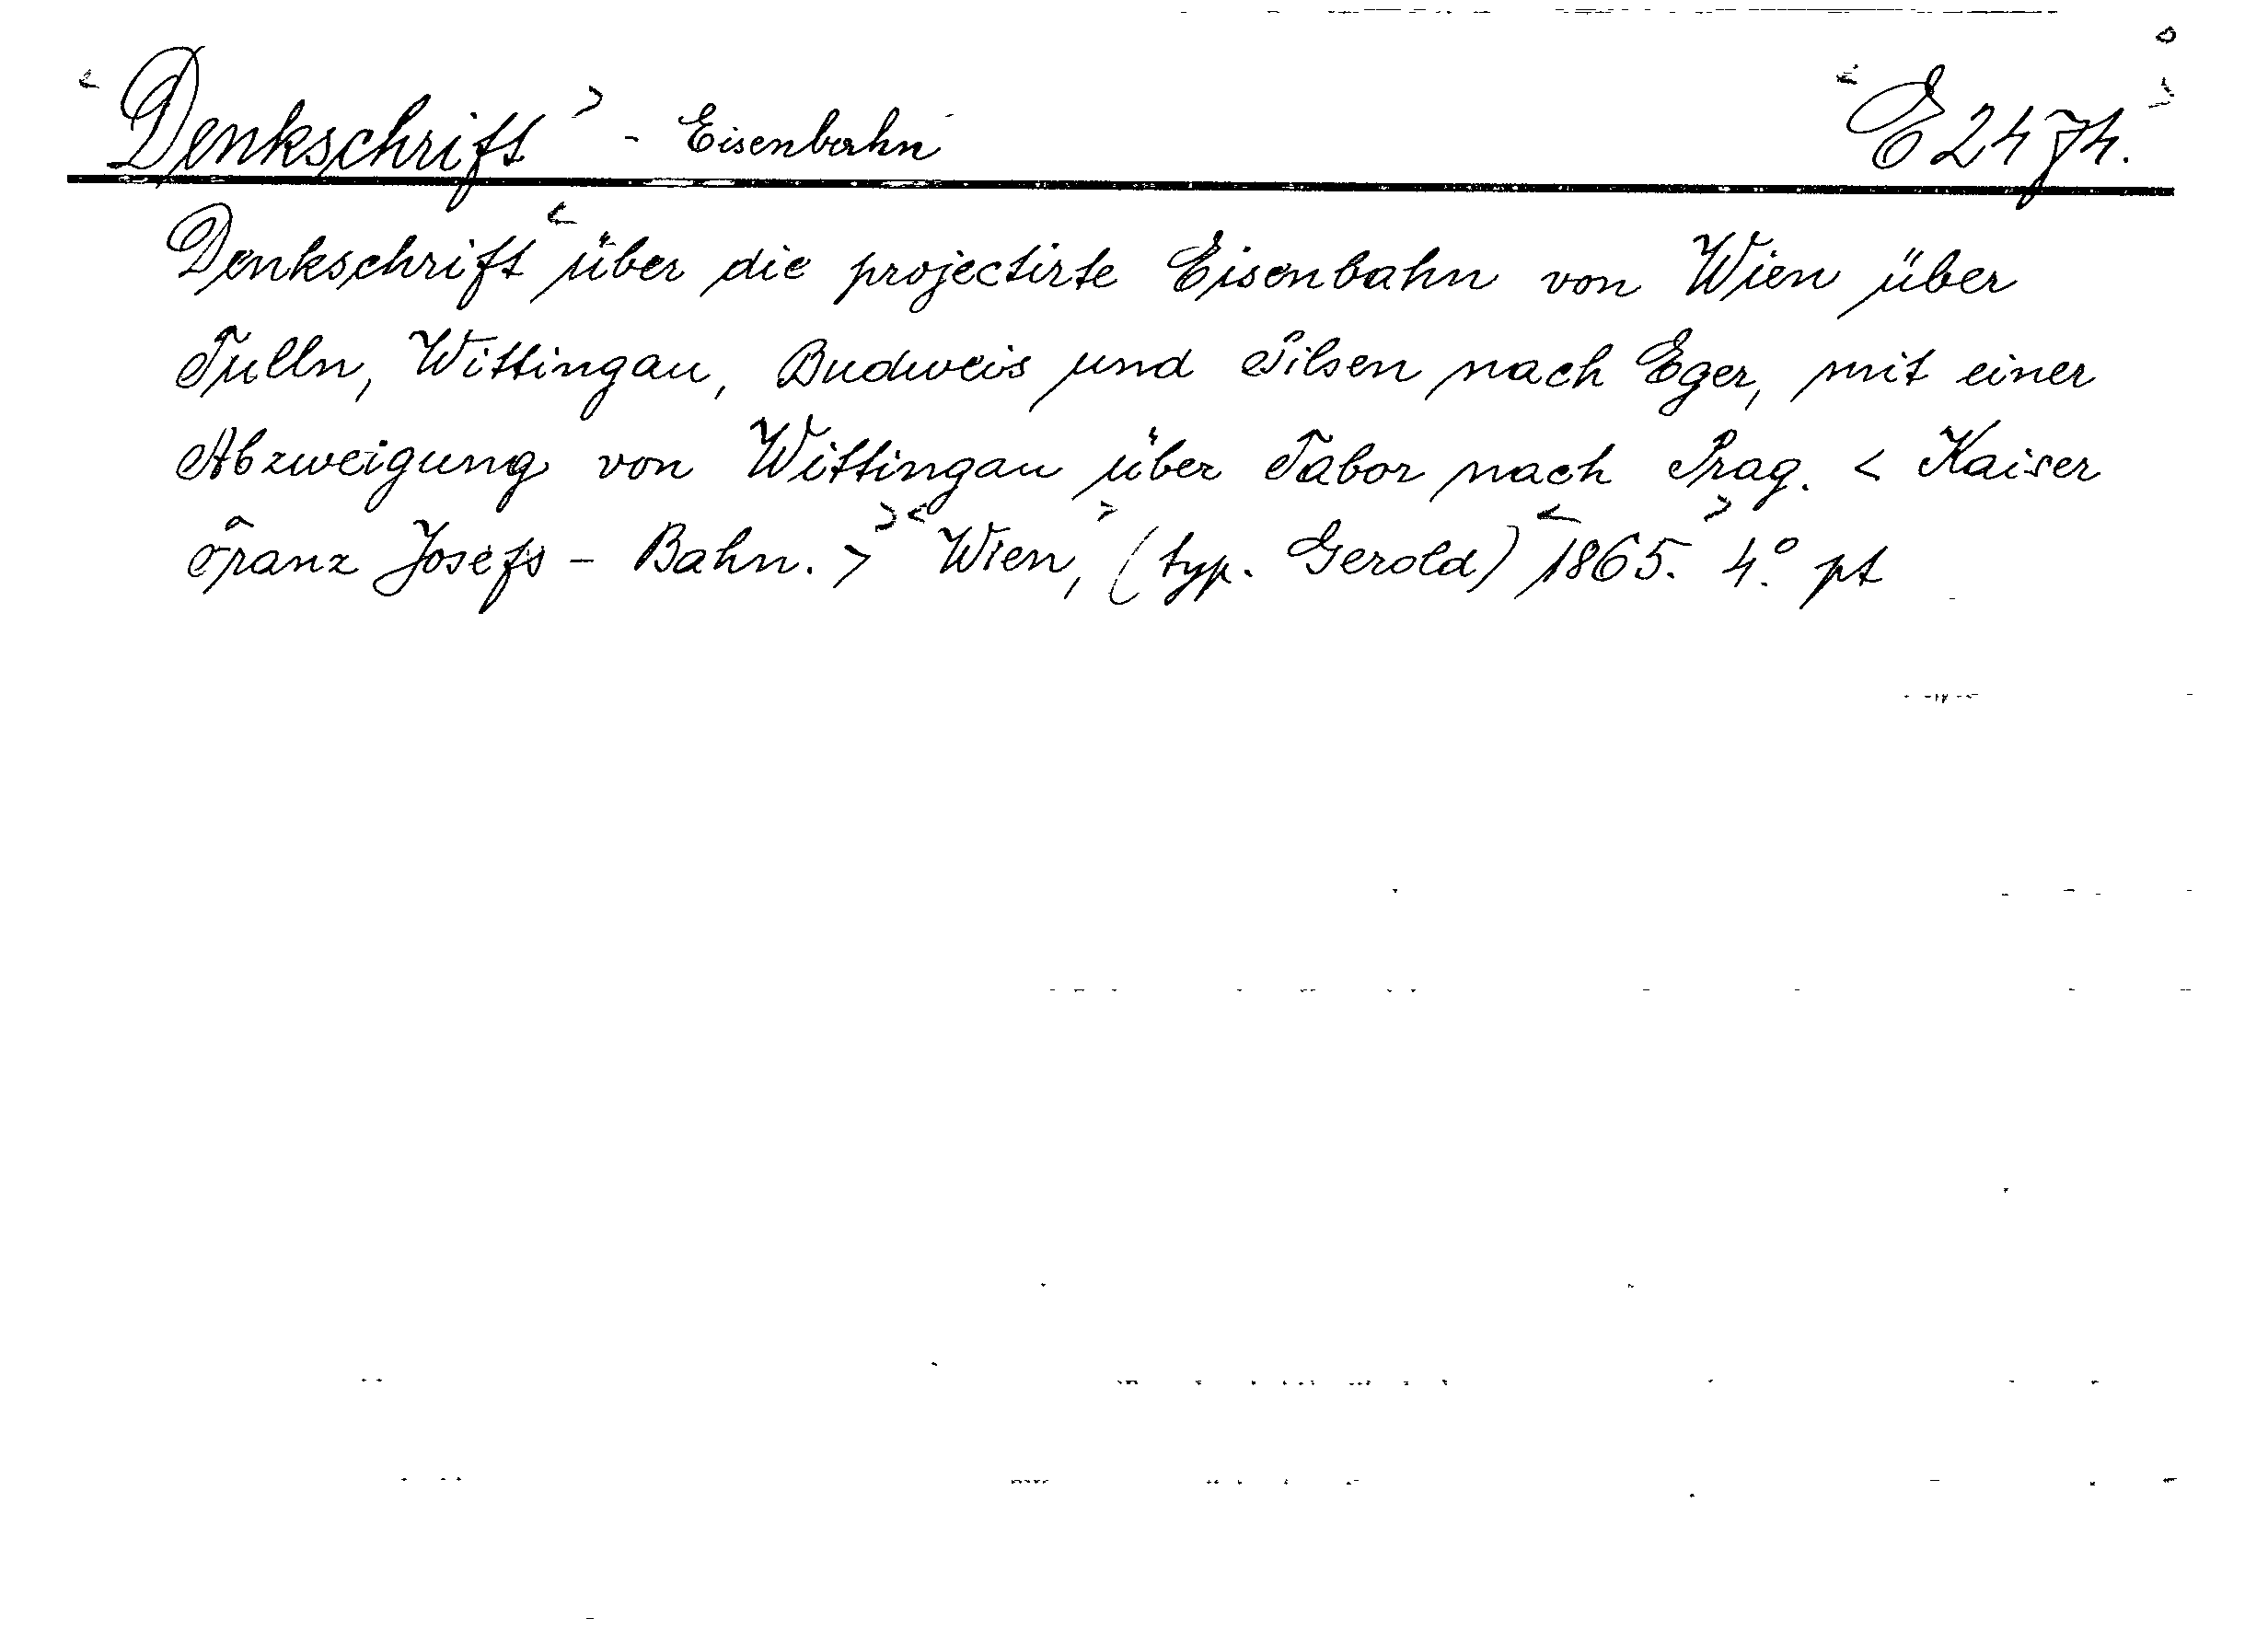 <Denkschrift> - Eisenbahn <E 2474.>
Denkschrift < über die projectirte Eisenbahn von Wien über
Tulln, Wittingau, Budweis und Pilsen nach Eger, mit einer
Abzweigung von Wittingau über Tabor nach Prag. < Kaiser
Franz Josefs - Bahn. > > < Wien, > (typ. Gerold) < 1865. > 4.° pt